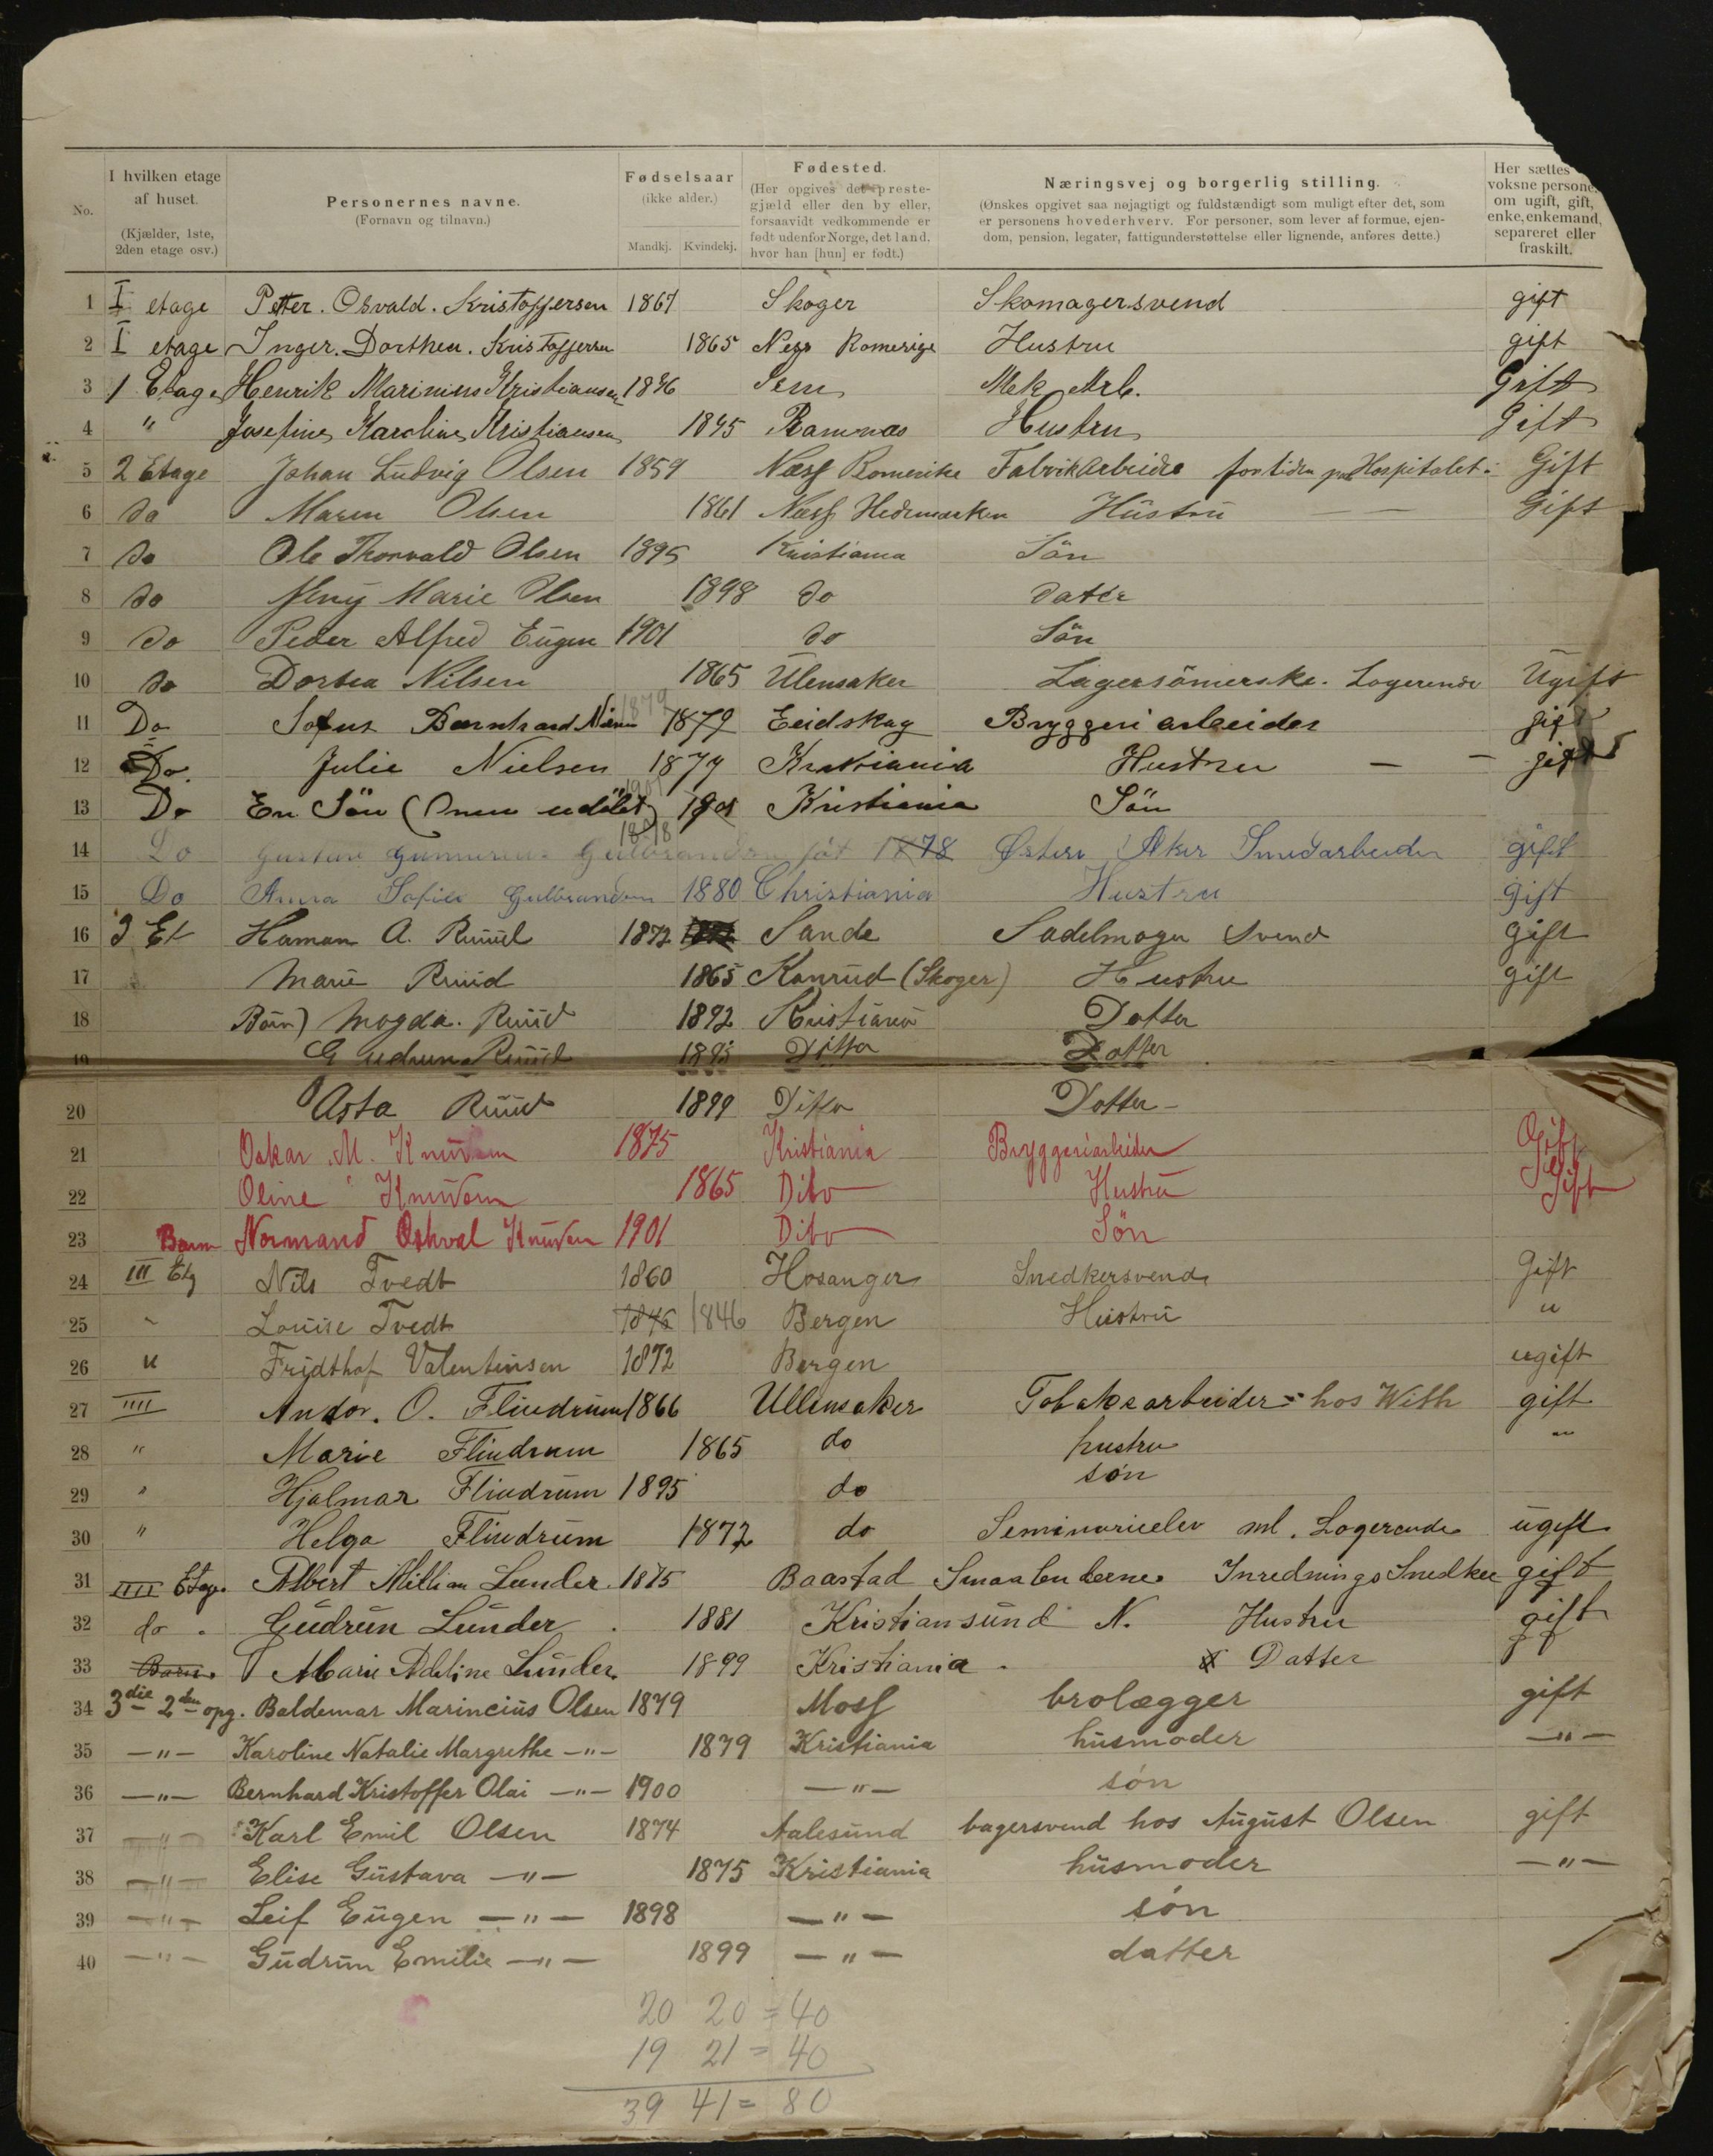 No.
I hvilken etage
af huset.
(Kjælder, 1ste,
2den etage osv.)
Personernes navne.
(Fornavn og tilnavn.)
Fødselsaar
(ikke alder.)
Mandkj. Kvindekj.
Fødested.
(Her opgives det preste-
gjæld eller den by eller,
forsaavidt vedkommende er
født udenfor Norge, det land,
hvor han [hun] er født.)
Næringsvej og borgerlig stilling.
(Ønskes opgivet saa nøjagtigt og fuldstændigt som muligt efter det, som
er personens hovederhverv. For personer, som lever af formue, ejen-
dom, pension, legater, fattigunderstøttelse eller lignende, anføres dette.)
Her sættes
voksne persone
om ugift, gift,
enke, enkemand,
separeret eller
fraskilt.
1 I etage Petter. Osvald. Kristoffersen 1867 Skoger Skomagersvend gift
2 I etage Inger. Dorthea. Kristoffersen 1865 Ness Romerige Hustru gift
3 1 Etage Henrik Marinius Kristiansen 1846 Sem Mek Arb. Gift
4 " Josefine Karoline Kristiansen 1845 Ramnæs Hustru Gift
5 2 Etage Johan Ludvig Olsen 1859 Næss Romerike Fabrikarbeider for tiden paa Hospitalet Gift
6 do Maren Olsen 1861 Næss Hedemarken Hustru Gift
7 do Ole Thorvald Olsen 1895 Kristiania Sön
8 do Jeny Marie Olsen 1898 do dater
9 do Peder Alfred Eugen 1901 do Sön
10 do Dortea Nilsen 1865 Ulensaker Lagersömerske. Logerende Ugift
11 Do Sofus Bernhard 1879 1879 Eidskog Bryggeri arbeider gift
12 Do. Julie Nielsen 1874 Kristiania Hustru — — gift
13 Do En Sön 1901 1901 Kristiania Sön
14 Do Gulbrandsen föt 1878 1878 Østere Aker Smedarbeider gift
15 Do Anna Sofie Gulbrandsen 1880 Christiania Hustru gift
16 3 Et Haman A. Ruud 1872 Sande Sadelmager Svend gift
17 Marie Ruud 1865 Konnrud (Skoger) Hustru gift
18 Börn) Magda. Ruud 1892 Kristiania Dotter
19 Gudrun Ruud 1895 Ditto Dotter
20 Asta Ruud 1899 Ditto Dotter
21 Oskar M. Knudsen 1875 Kristiania Bryggeriarbeider Gift
22 Oline Knudsen 1865 Dito Hustru Gift
23 Barn Normand Oskval Knudsen 1901 Dito Sön
24 III Etg Nils Tvedt 1860 Hosanger Snedkersvend Gift
25 " Louise Tvedt 1846 1846 Bergen Hustru "
26 " Fridthof Valentinsen 1872 Bergen ugift
27 IIII Andor. O. Flindrum 1866 Ullensaker Tobaksarbeider hos With gift
28 " Marie Flindrum 1865 do hustru "
29 " Hjalmar Flindrum 1895 do søn
30 " Helga Flindrum 1872 do Seminarieelev ml. Logerende ugift
31 IIII Etage Albert Millian Lunder. 1875 Baastad Smaalenene Inrednings Snedker gift
32 do. Gudrun Lunder 1881 Kristiansund N. Hustru gift
33 Barn Marie Adeline Lunder 1899 Kristiania. Datter
34 3die 2den opg. Baldemar Marincius Olsen 1879 Moss brolægger gift
35 —"— Karoline Natalie Margrethe —"— 1879 Kristiania husmoder —"—
36 —"— Bernhard Kristoffer Olai —"— 1900 —"— søn
37 —"— Karl Emil Olsen 1874 Aalesund bagersvend hos August Olsen gift
38 —"— Elise Gustava —"— 1875 Kristiania husmoder —"—
39 —"— Leif Eugen —"— 1898 —"— søn
40 —"— Gudrun Emilie —"— 1899 —"— datter
20 20 = 40
19 21 = 40
39 41 = 80